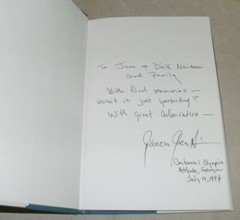 To Jane + Dick
and Family
With fond memories —
wasn't it just yesterday?
With great admiration —
Centennial Olympics
Atlanta, Georgia
July 19, 1996